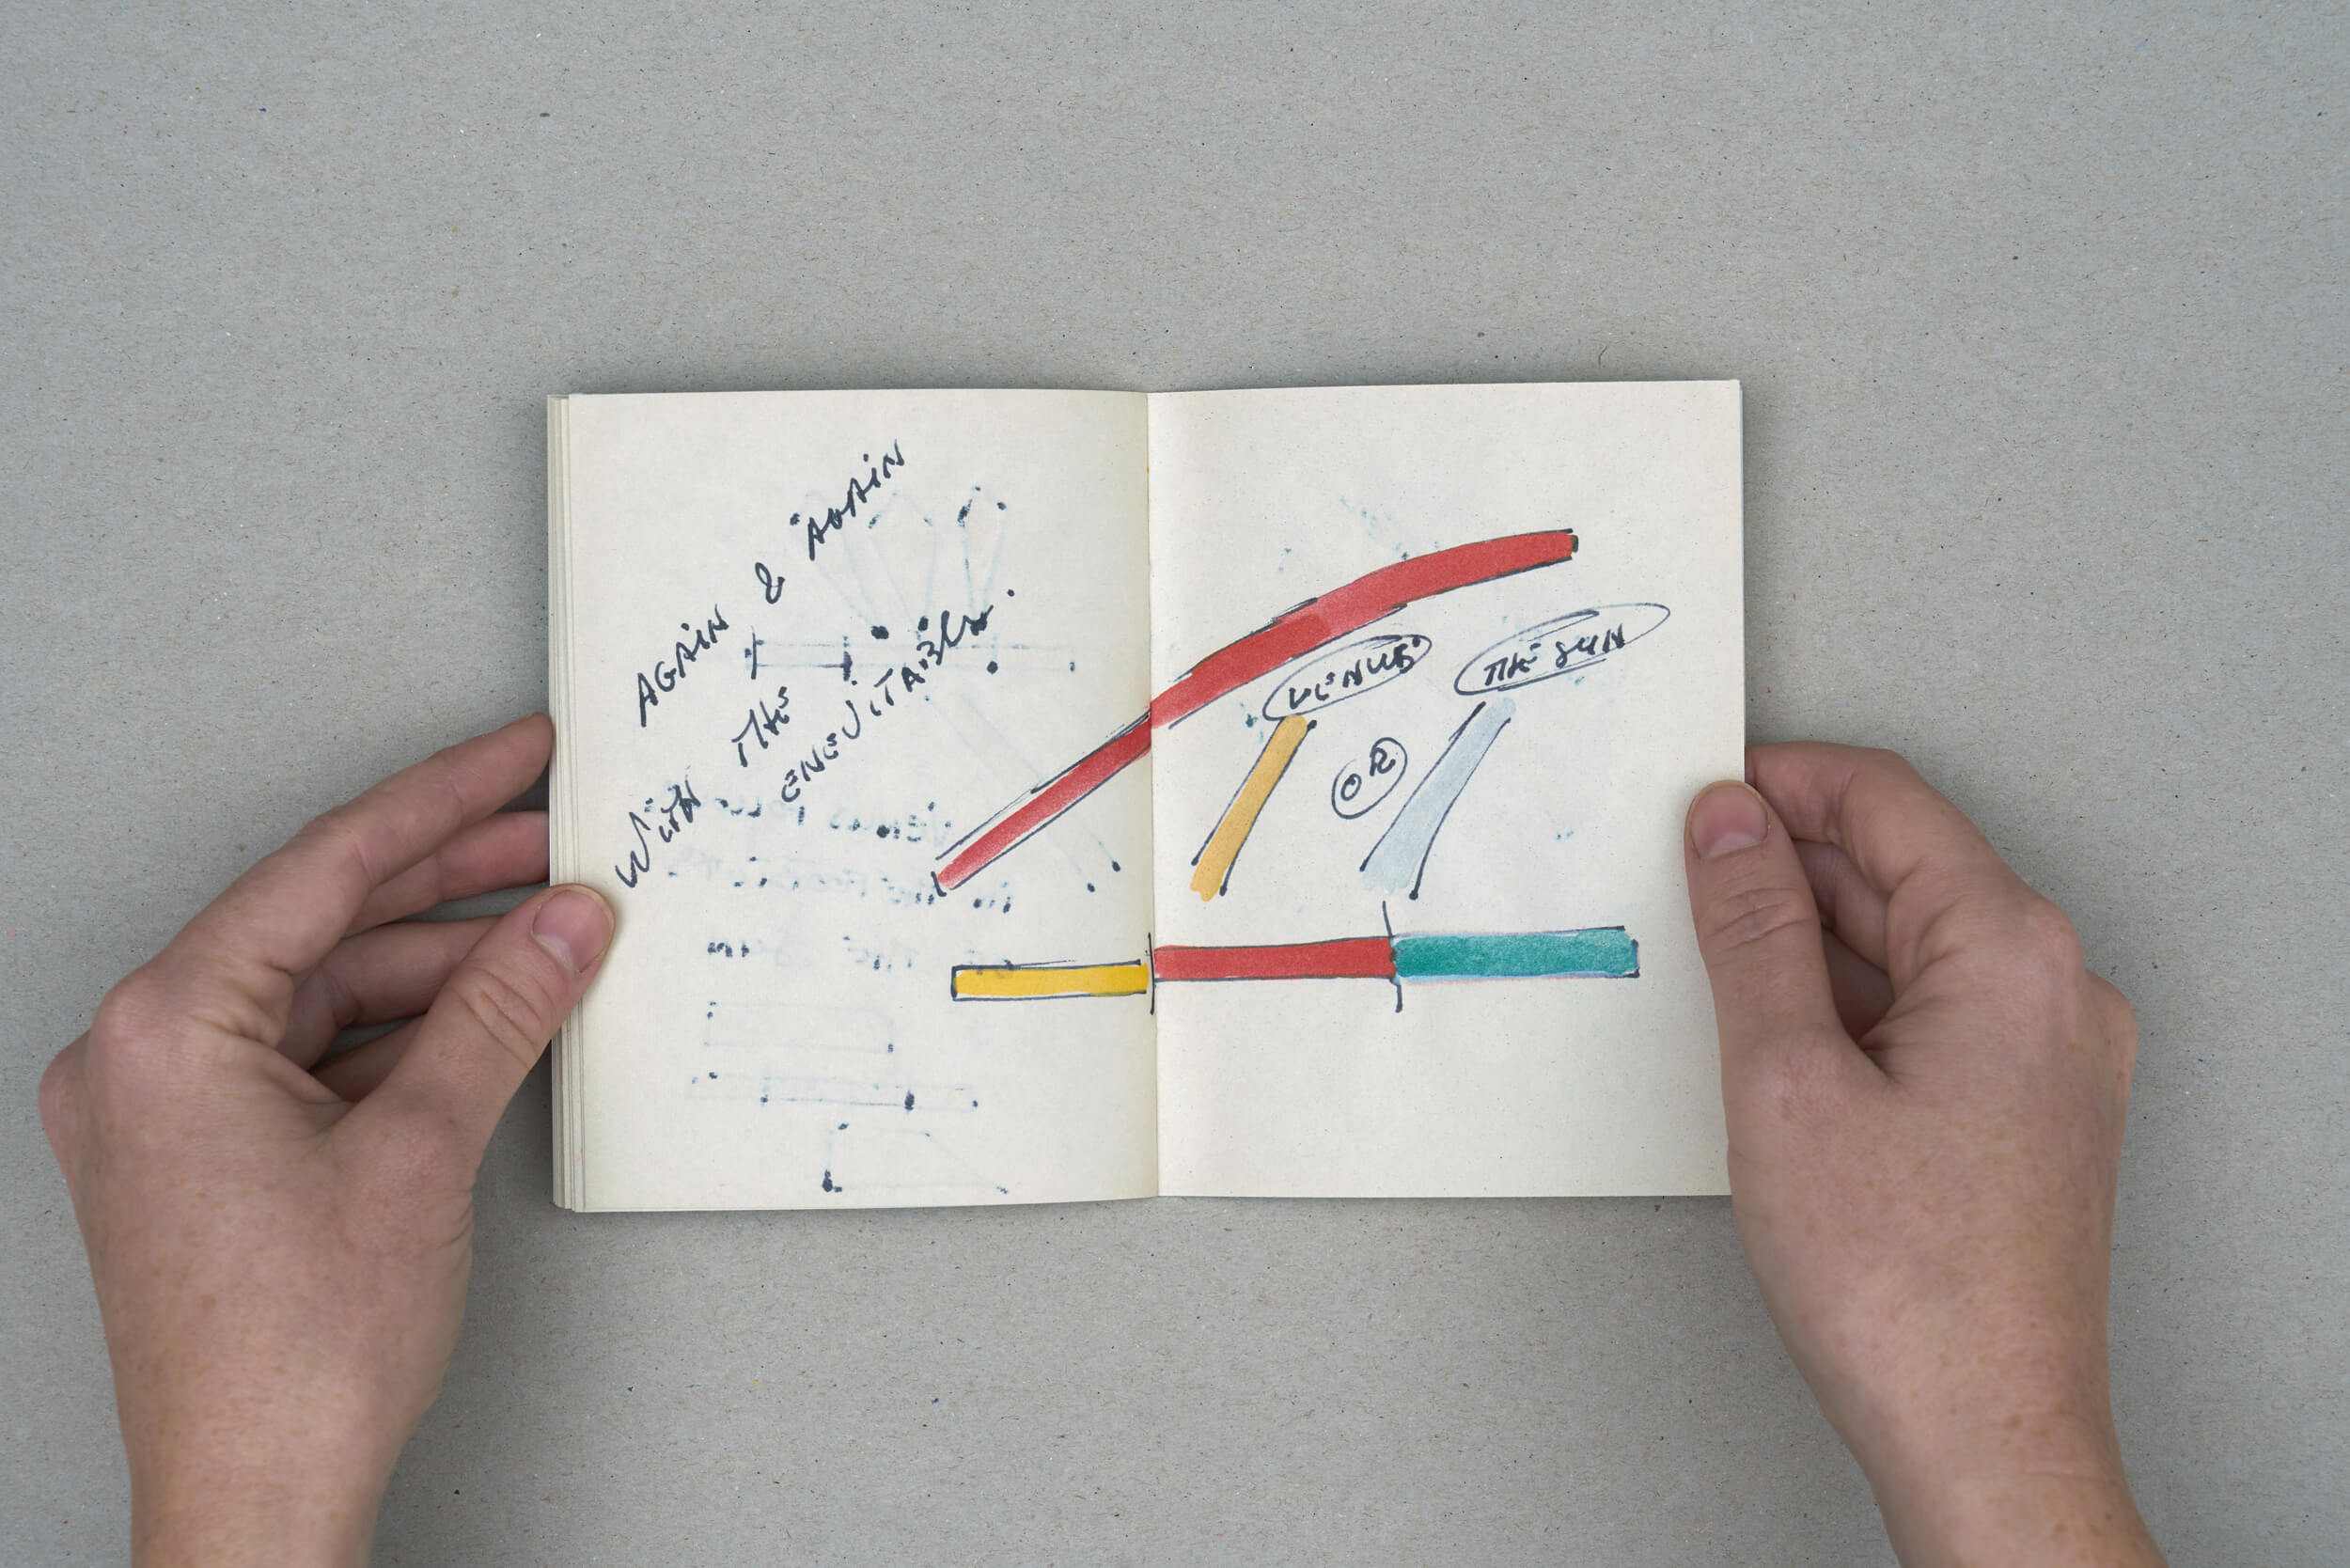 AGAIN & AGAIN
WITH THE
ENEVITABLE.
VENUS
OR
THE SUN